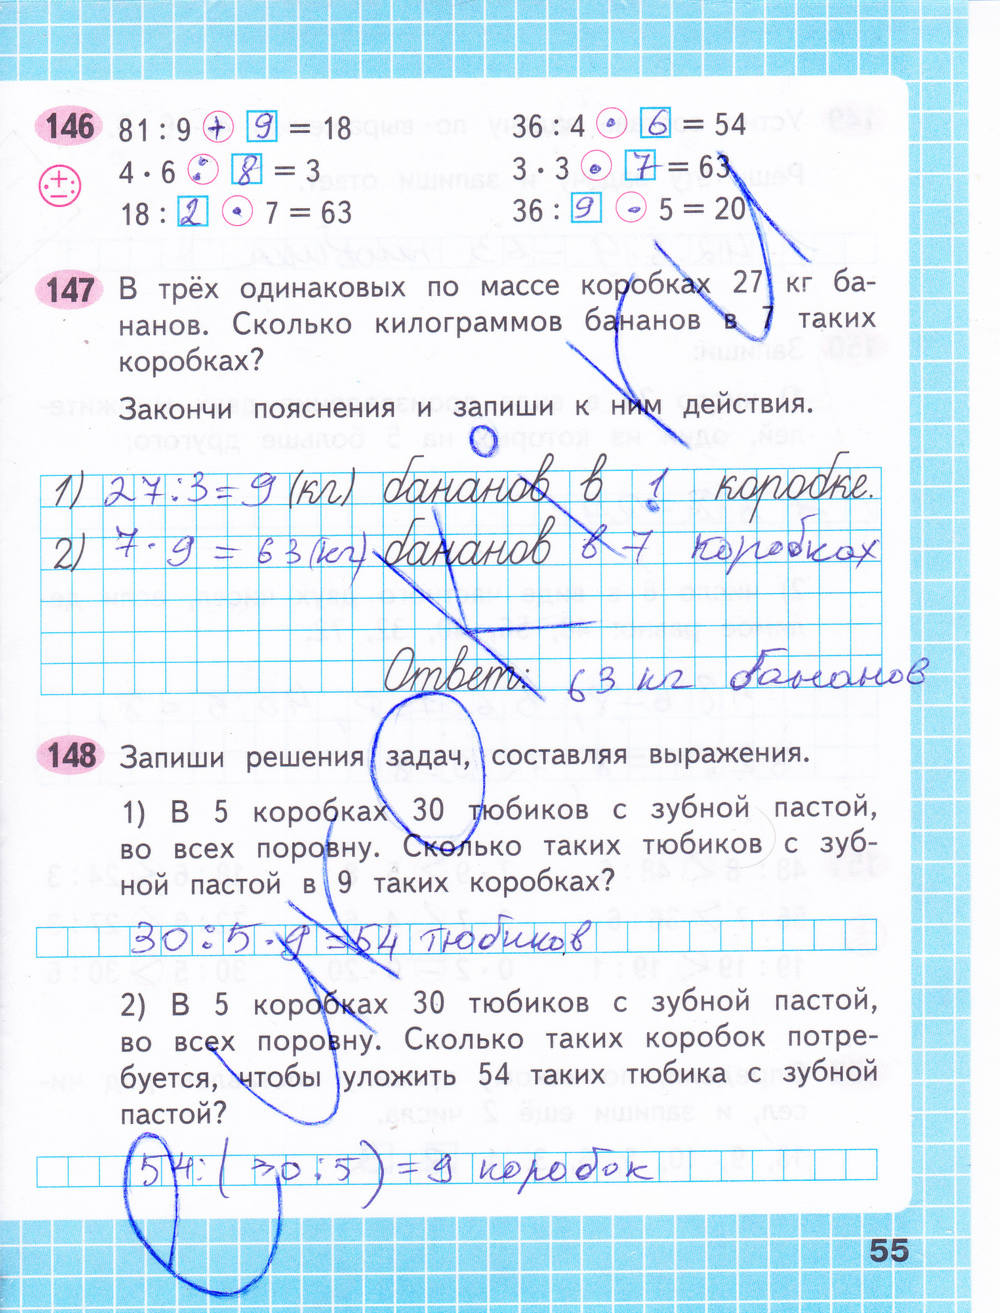 146
81 : 9 + 9 = 18
36 : 4 · 6 = 54
4 · 6 : 8 = 3
3 · 3 · 7 = 63
18 : 2 · 7 = 63
36 : 9 · 5 = 20
147 В трёх одинаковых по массе коробках 27 кг ба-
нанов. Сколько килограммов бананов в 7 таких
коробках?
Закончи пояснения и запиши к ним действия.
1) 27 : 3 = 9 (кг) бананов в 1 коробке.
2) 7 · 9 = 63 (кг) бананов в 7 коробках
Ответ: 63 кг бананов
148 Запиши решения задач, составляя выражения.
1) В 5 коробках 30 тюбиков с зубной пастой,
во всех поровну. Сколько таких тюбиков с зуб-
ной пастой в 9 таких коробках?
30 : 5 · 9 = 54 тюбиков
2) В 5 коробках 30 тюбиков с зубной пастой,
во всех поровну. Сколько таких коробок потре-
буется, чтобы уложить 54 таких тюбика с зубной
пастой?
54 : ( 30 : 5 ) = 9 коробок
55